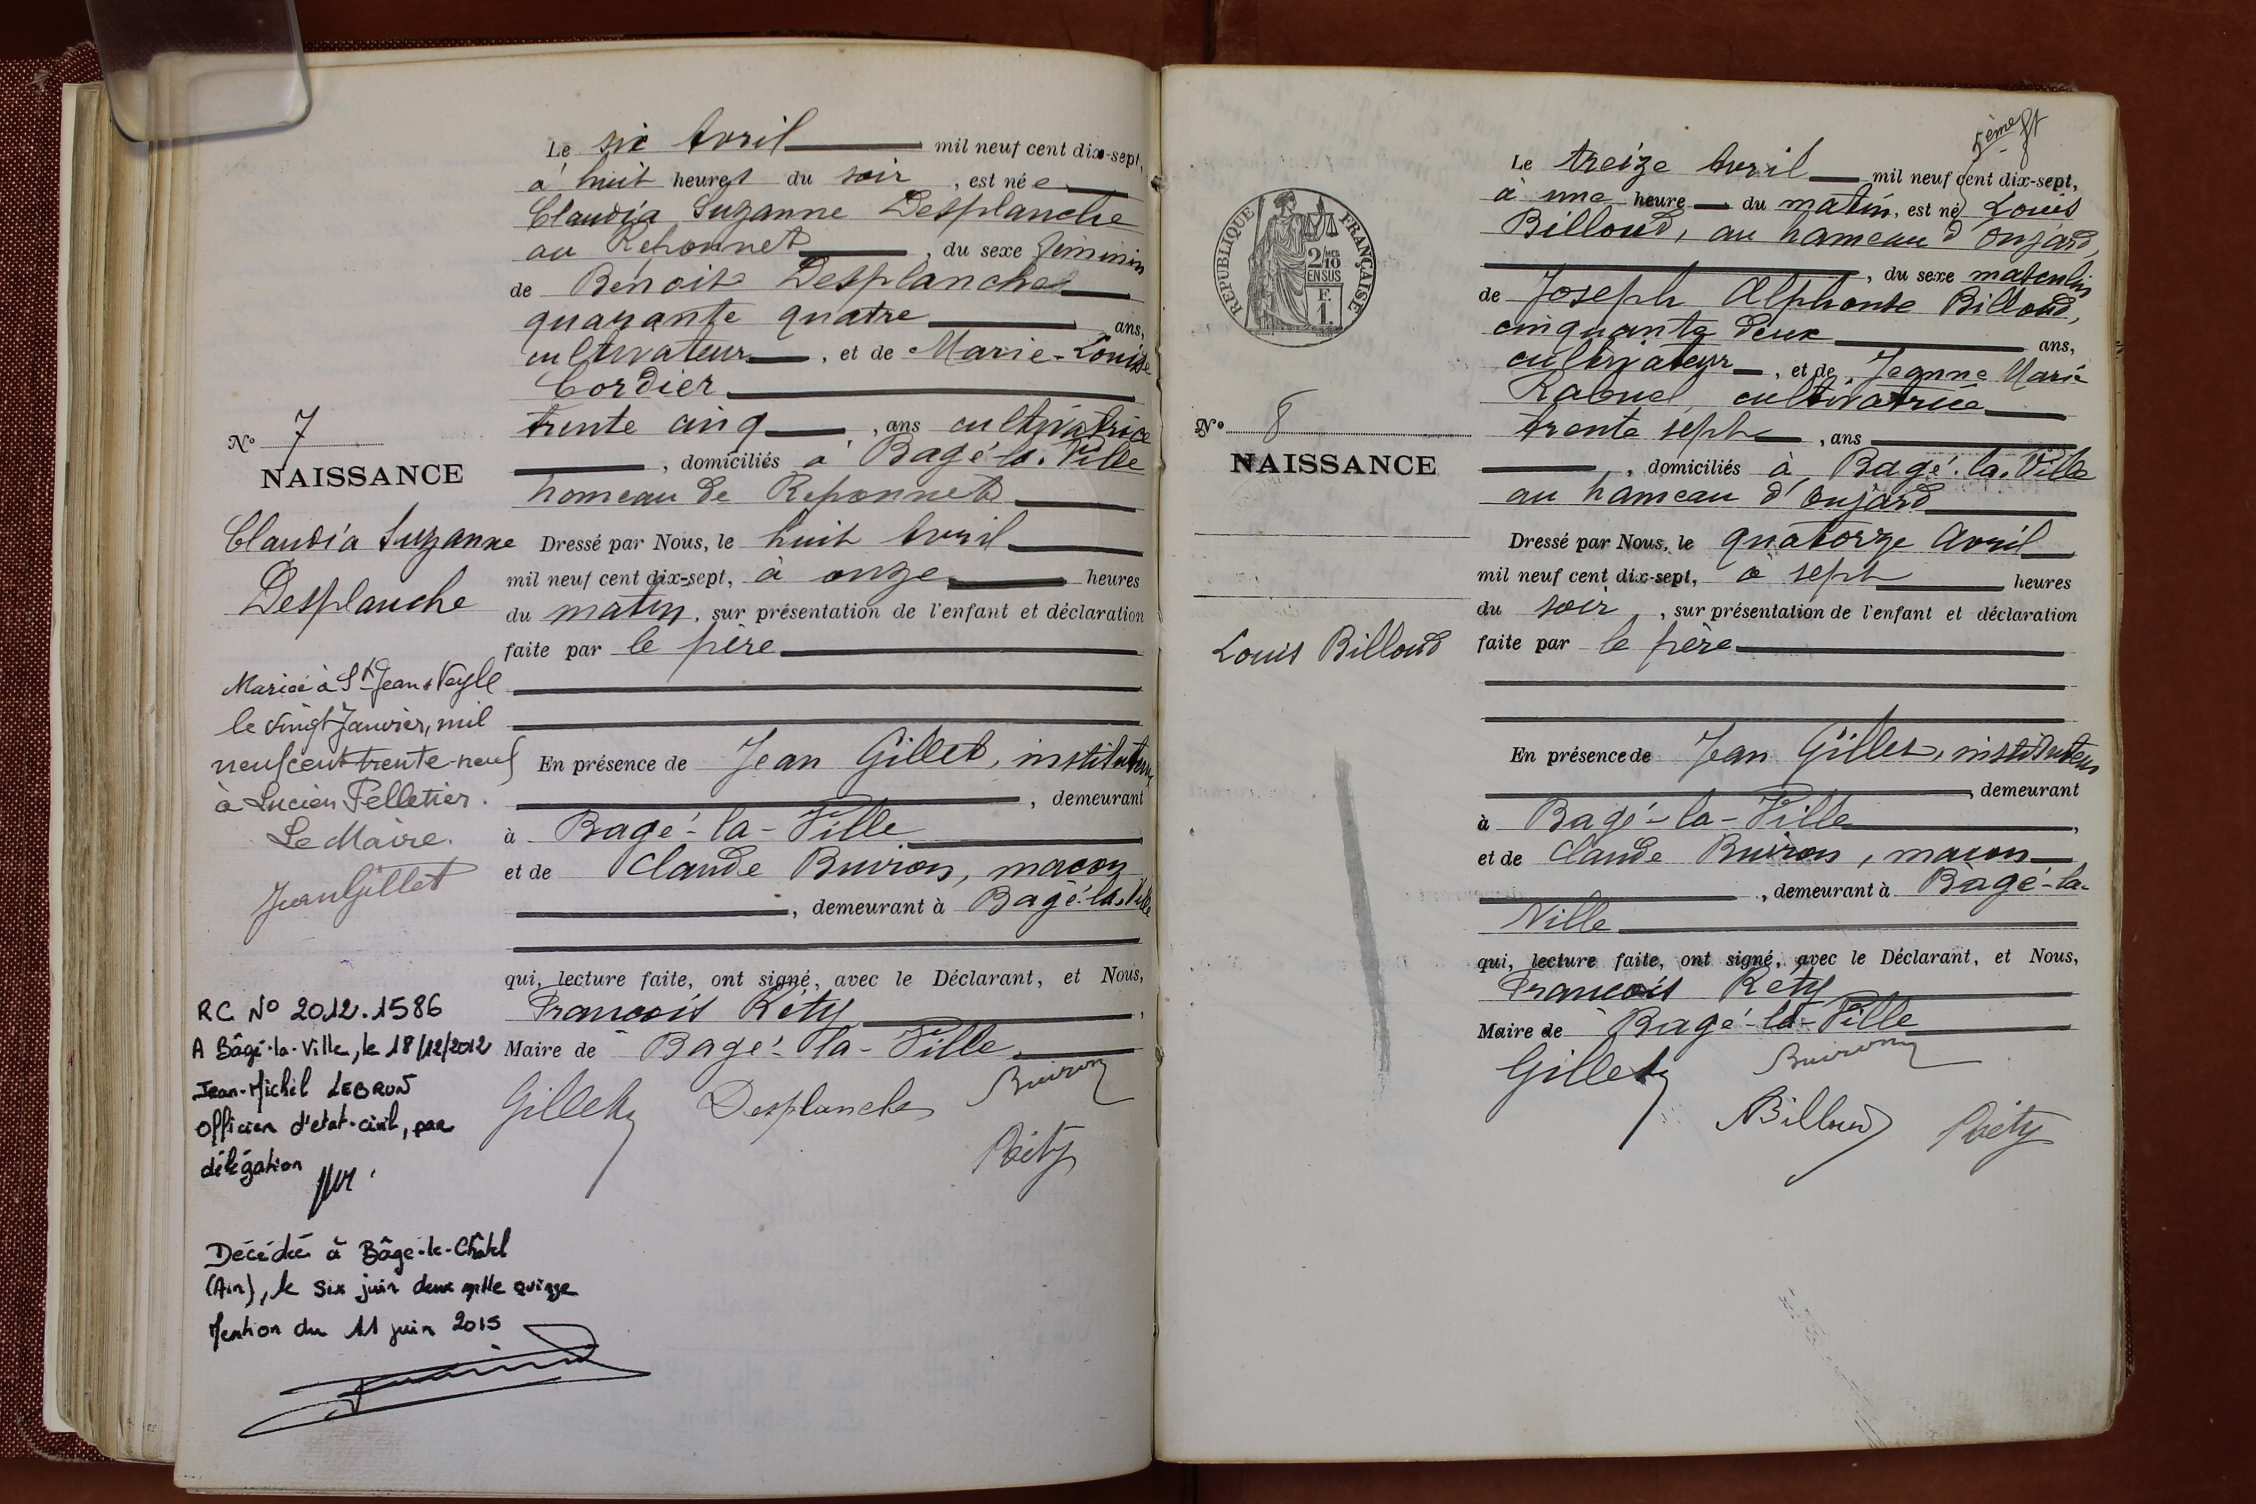 Le six Avril mil neuf cent dix-sept,
à huit heures du soir, est née
Claudia Suzanne Desplanche
au Reponnet, du sexe féminin
de Benoit Desplanche
quarante quatre ans,
cultivateur, et de Marie-Louise
Cordier
trente cinq, ans cultivatrice
, domiciliés à Bagé-la-Ville
hameau de Reponnet
N° 7
NAISSANCE
Claudia Suzanne
Desplanche
Dressé par Nous, le huit Avril
mil neuf cent dix-sept, à onze heures
du matin, sur présentation de l'enfant et déclaration
faite par le père
Mariée à St Jean s Veyle
le vingt Janvier, mil
neuf cent trente-neuf
à Lucien Pelletier.
Le Maire.
Jean Gillet
En présence de Jean Gillet, instituteur
, demeurant
à Bagé-la-Ville,
et de Claude Buiron, maçon
, demeurant à Bagé-la-Ville
qui, lecture faite, ont signé, avec le Déclarant, et Nous,
François Réty,
Maire de Bagé-la-Ville
Gillet Desplanche Buiron
Réty
RC N° 2012.1586
A Bâgé-la-Ville, le 18/12/2012
Jean-Michel LEBRUN
Officier d'état-civil, par
délégation
Décédée à Bâgé-le-Châtel
(Ain), le six juin deux mille quinze
Mention du 11 juin 2015
5ème ft
RÉPUBLIQUE FRANÇAISE
2/10
EN SUS
F.
1.
Le treize Avril mil neuf cent dix-sept,
à une heure du matin, est né Louis
Billoud, au hameau d'Oujard,
, du sexe masculin
de Joseph Alphonse Billoud,
cinquante deux ans,
cultivateur, et de Jeanne Marie
Rabuel, cultivatrice
trente sept, ans
, domiciliés à Bagé-la-Ville
au hameau d'Oujard
N° 8
NAISSANCE
Louis Billoud
Dressé par Nous, le quatorze Avril
mil neuf cent dix-sept, à sept heures
du soir, sur présentation de l'enfant et déclaration
faite par le père
En présence de Jean Gillet, instituteur
, demeurant
à Bagé-la-Ville,
et de Claude Buiron, maçon
, demeurant à Bagé-la-
Ville
qui, lecture faite, ont signé, avec le Déclarant, et Nous,
François Réty
Maire de Bagé-la-Ville
Gillet Buiron
Billoud Réty